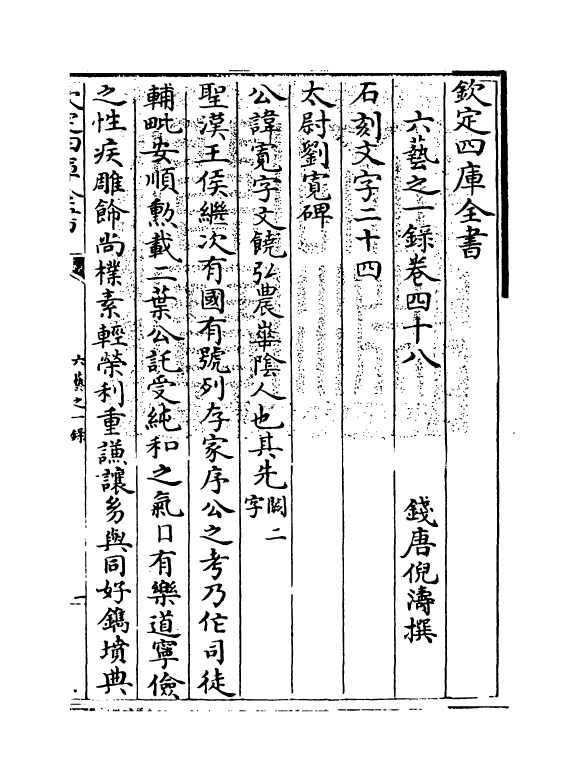 欽定四庫全書
六藝之一錄卷四十八
錢唐倪濤撰
石刻文字二十四
太尉劉寬碑
公諱寬字文饒弘農華陰人也其先闕二字
聖漢王侯繼次有國有號列存家序公之考乃作司徒
輔毗安順勲載二葉公託受純和之氣口有樂道寧儉
之性疾雕飾尚樸素輕榮利重謙讓多與同好鐫墳典
六藝之一錄
一